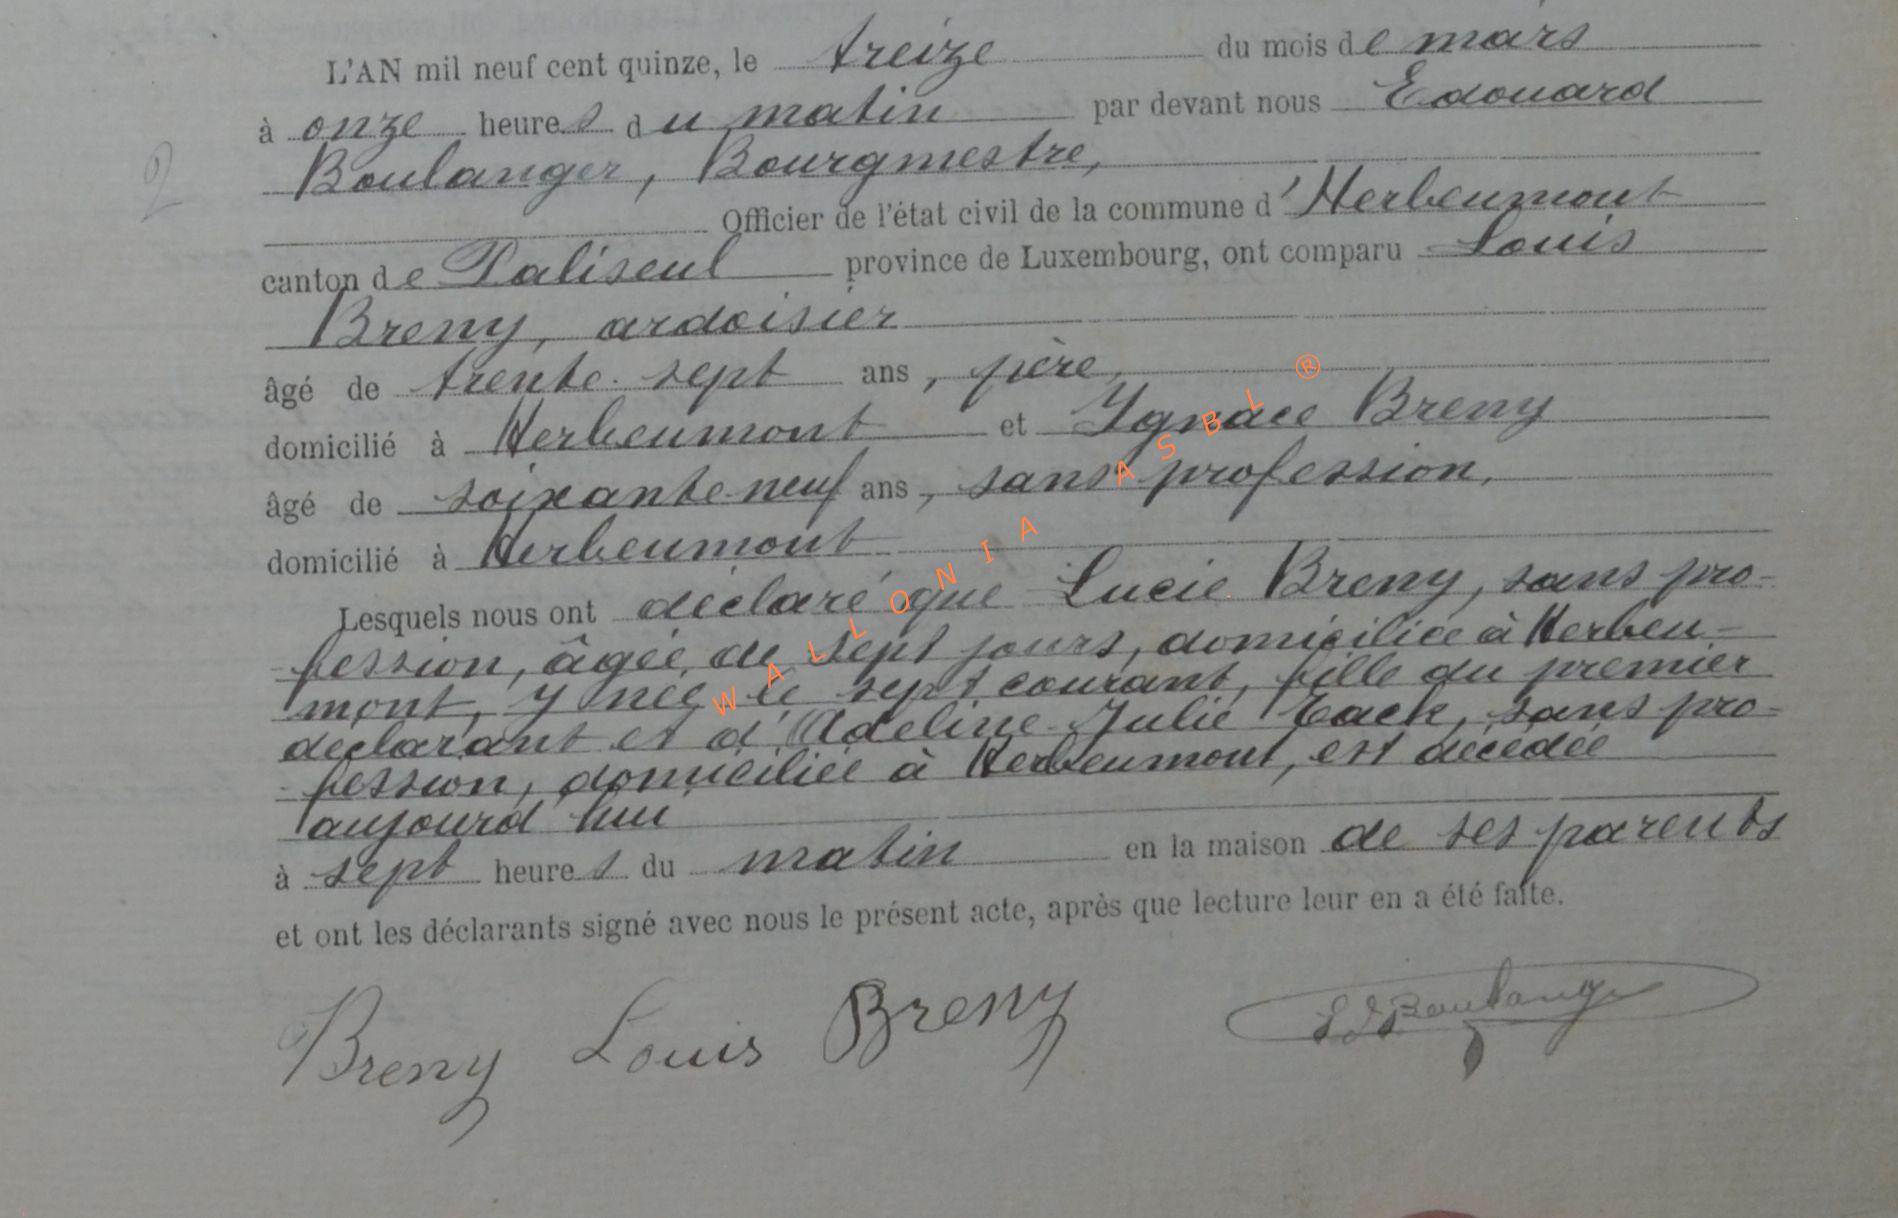 L'AN mil neuf cent quinze, le treize du mois de mars
2
à onze heures du matin par devant nous Edouard
Boulanger, Bourgmestre,
Officier de l'état civil de la commune d'Herbeumont
canton de Paliseul province de Luxembourg, ont comparu Louis
Breny, ardoisier
âgé de trente-sept ans, père,
domicilié à Herbeumont et Ignace Breny
âgé de soixante-neuf ans, sans profession,
domicilié à Herbeumont
Lesquels nous ont déclaré que Lucie Breny, sans pro-
fession, âgée de sept jours, domiciliée à Herbeu-
mont, y née le sept courant, fille du premier
déclarant et d'Adeline Julie Eack, sans pro-
fession, domiciliée à Herbeumont, est décédée
aujourd'hui
à sept heures du matin en la maison de ses parents
et ont les déclarants signé avec nous le présent acte, après que lecture leur en a été faite.
Breny Louis Breny
Ed Boulanger
WALLONIA ASBL ®